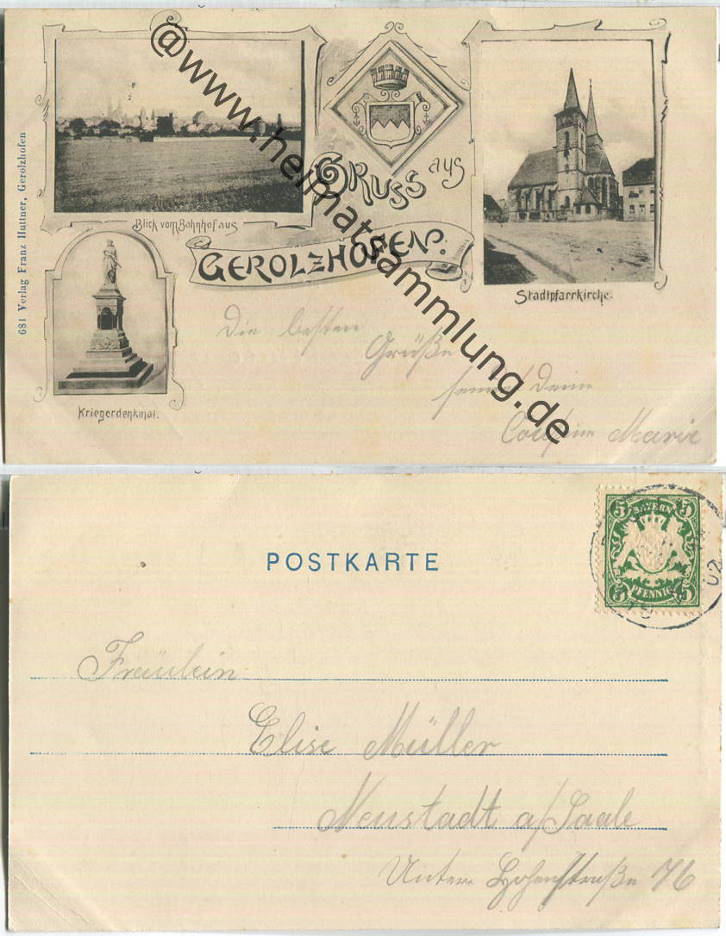 681 Verlag Franz Huttner, Gerolzhofen
Blick vom Bahnhof aus
GRUSS aus
GEROLZHOFEN.
Stadtpfarrkirche.
Kriegerdenkmal.
Die besten
Grüße
sendet Deine
Cousine Marie
@www.heimatsammlung.de
POSTKARTE
5 BAYERN 5
5 PFENNIG 5
02
Fräulein
Elise Müller
Neustadt a/Saale
Untere Hohenstraße 76